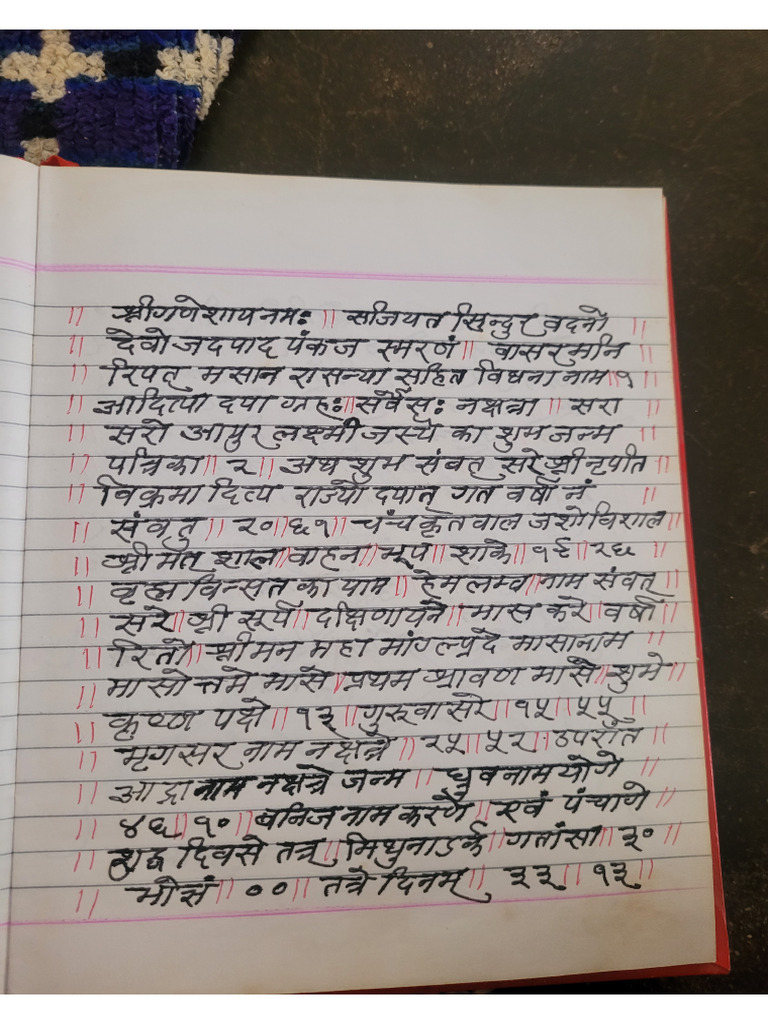 ॥ श्रीगणेशायनमः ॥ सजियत सिन्दुर वदनो ॥
॥ देवो जदपाद पंकज स्मरणं ॥ वासरमनि ॥
॥ रिपत मसान रासन्या सहित विघना नाम ॥ १
॥ आदित्या दया ग्रहः ॥ सर्वेसः नक्षत्रा ॥ सरा ॥
॥ सरो आयुर लक्ष्मी जस्ये का शुभ जन्म ॥
॥ पत्रिका ॥ २ ॥ अथ शुभ संवत् सरे श्री नृपति
॥ विक्रमा दित्य राज्यो दयात् गत वर्षा नं ॥
॥ संवत् ॥ २०॥६१ ॥ पंच कृतवाल जशोविशाल ॥
॥ श्री मंत शाल ॥ वाहन ॥ भूप ॥ शाके ॥ १९॥२६
॥ वृह्म विन्सत का याम ॥ हेमलम्व ॥ नाम संवत् ॥
॥ सरे ॥ श्री सूर्य ॥ दक्षिणायने ॥ मास करे ॥ वर्षा ॥
॥ रितौ ॥ श्रीमन महा मांगल्यप्रदे मासानाम ॥
॥ मासोत्तमे मासे ॥ प्रथम श्रावण मासे ॥ शुभे
॥ कृष्ण पक्षे ॥ १३ ॥ गुरूवासरे ॥ १५ ॥ ५५ ॥
॥ मृगसर नाम नक्षत्रे ॥ २५ ॥ ५२ ॥ उपराँत ॥
॥ आद्रा नाम नक्षत्रे जन्म ॥ ध्रुव नाम योगे ॥
॥ ४६ ॥ १० ॥ वनिज नाम करणै ॥ एवं पंचागे ॥
॥ शुद्ध दिवसे तत्र ॥ मिथुनाऽर्क ॥ गतांसा ॥ ३० ॥
॥ भोसं ॥ ०० ॥ तत्रे दिनम् ॥ ३३ ॥ १३ ॥